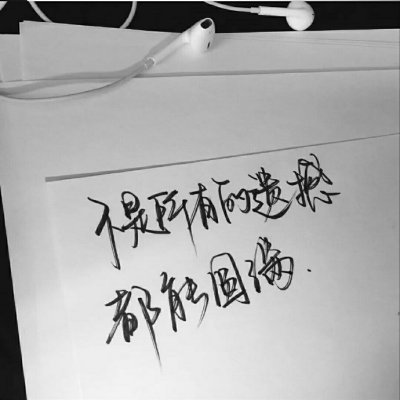 不是所有的遗憾
都能圆满.